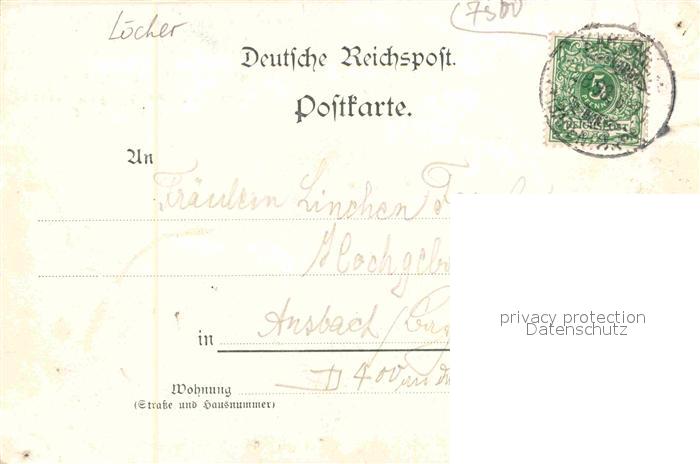 Löcher
(7500
Deutsche Reichspost.
Postkarte.
5
PFENNIG
REICHSPOST
An
Fräulein Linchen
Hochgebo
in Ansbach /
privacy protection
Datenschutz
D 400 an d
Wohnung
(Straße und Hausnummer)